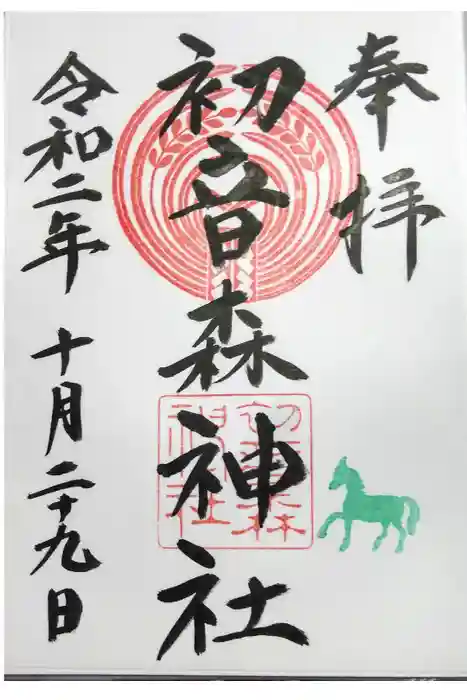 奉拝
初音森神社
初音森
神社
令和二年 十月二十九日